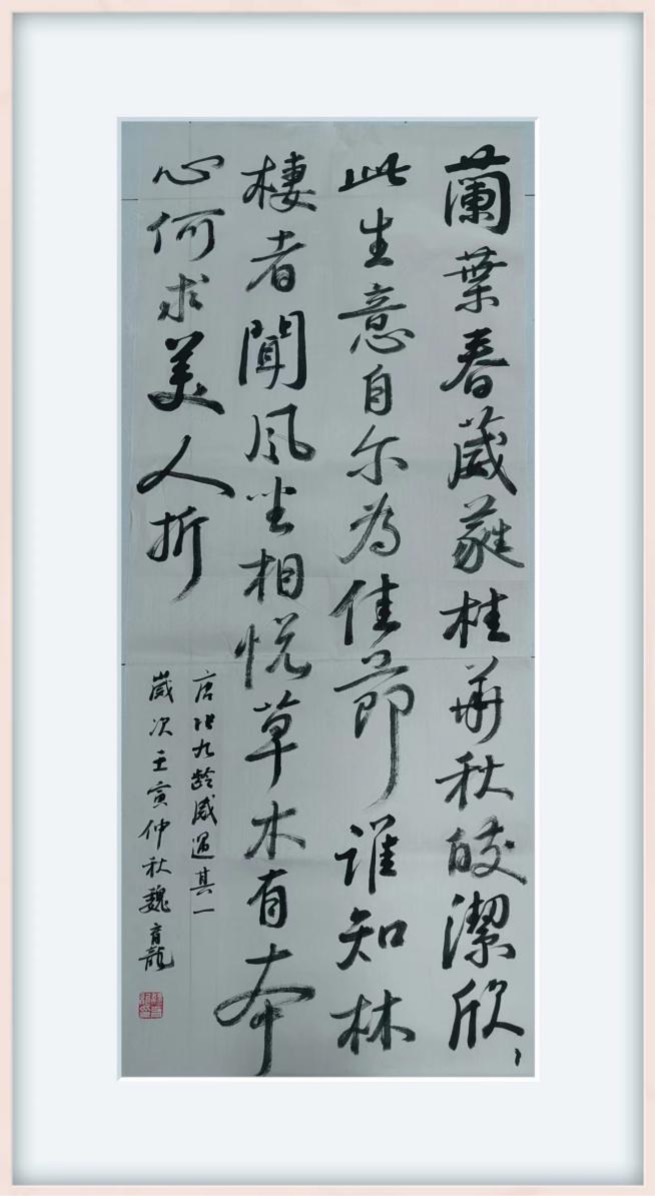 蘭葉春葳蕤桂華秋皎潔欣〻
此生意自尔為佳節誰知林
棲者聞風坐相悦草木有本
心何求美人折
唐张九龄感遇其一
歲次壬寅仲秋魏育龍